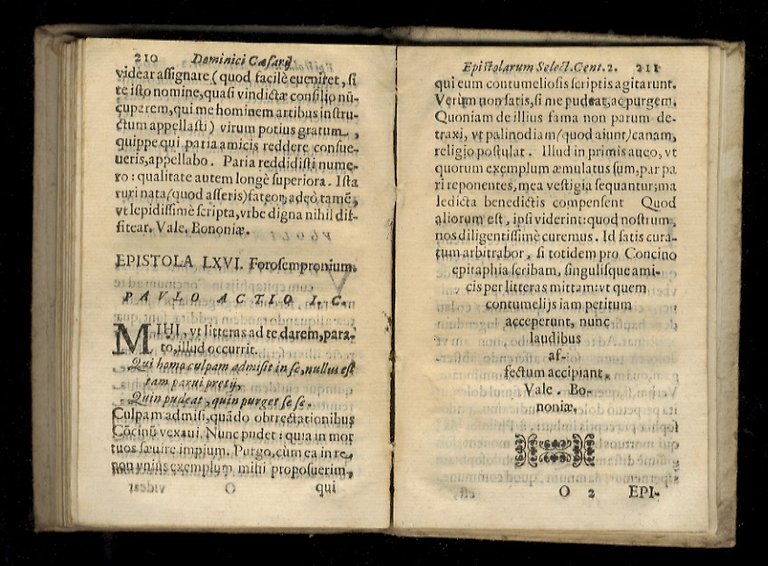 210 Dominici Cæsarij
videar assignare (quod facilè eueniret, si
te isto nomine, quasi vindictæ consilio nū-
cuparem, qui me hominem artibus instru-
ctum appellasti) virum potius gratum,
quippe qui paria amicis reddere consue-
ueris, appellabo. Paria reddidisti nume-
ro: qualitate autem longè superiora. Ista
ruri nata (quod asseris) fateor, adeò tamē,
vt lepidissimè scripta, vrbe digna nihil dif-
fitear. Vale. Bononiæ.
EPISTOLA LXVI. Forosempronium.
PAVLO ACTIO I. C.
MIHI, vt litteras ad te darem, para-
to, illud occurrit.
Qui homo culpam admisit in se, nullus est
tam parui pretij,
Quin pudeat, quin purget se se.
Culpam admisi, quādo obtrectationibus
Cōcinū vexaui. Nunc pudet: quia in mor
tuos sæuire impium. Purgo, cùm ea in re,
non vnius exemplum mihi proposuerim,
O qui
Epistolarum Select. Cent. 2. 211
qui eum contumeliosis scriptis agitarunt.
Verùm non satis, si me pudeat, ac purgem.
Quoniam de illius fama non parum de-
traxi, vt palinodiam (quod aiunt) canam,
religio postulat. Illud in primis aueo, vt
quorum exemplum æmulatus sum, par pa
ri reponentes, mea vestigia sequantur; ma
ledicta benedictis compensent Quod
aliorum est, ipsi viderint: quod nostrum,
nos diligentissimè curemus. Id satis cura-
tum arbitrabor, si totidem pro Concino
epitaphia scribam, singulisque ami-
cis per litteras mittam: vt quem
contumelijs iam petitum
acceperunt, nunc
laudibus
af-
fectum accipiant.
Vale. Bo-
noniæ.
O 2 EPI-